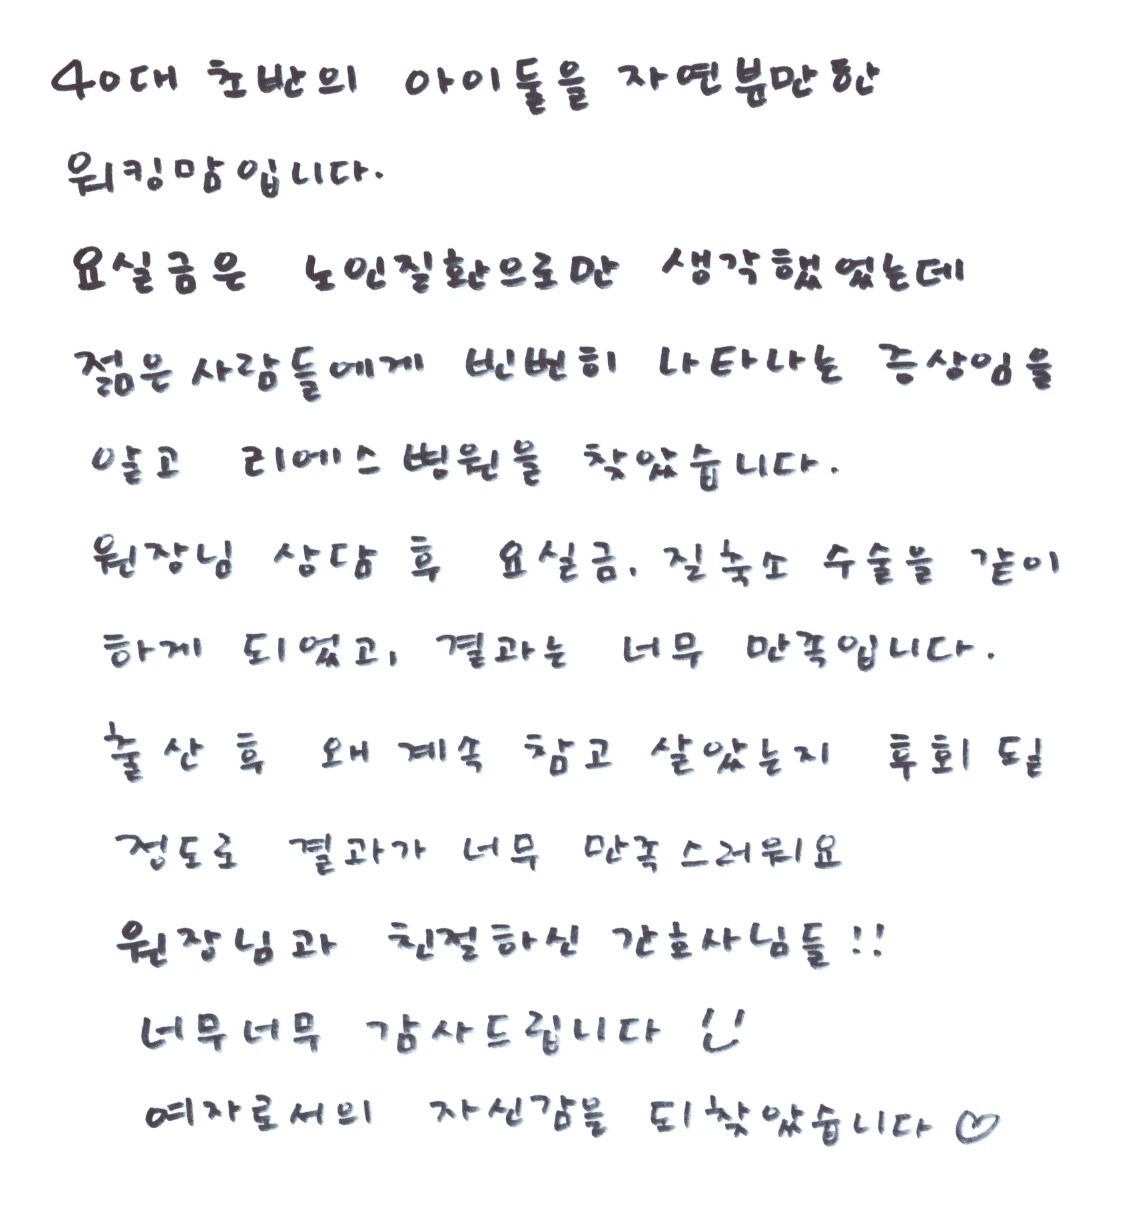 40대 초반의 아이둘을 자연분만한
워킹맘입니다.
요실금은 노인질환으로만 생각했었는데
젊은사람들에게 빈번히 나타나는 증상임을
알고 리에스병원을 찾았습니다.
원장님 상담 후 요실금, 질축소 수술을 같이
하게 되었고, 결과는 너무 만족입니다.
출산 후 왜 계속 참고 살았는지 후회 될
정도로 결과가 너무 만족스러워요
원장님과 친절하신 간호사님들!!
너무너무 감사드립니다
여자로서의 자신감을 되찾았습니다♡